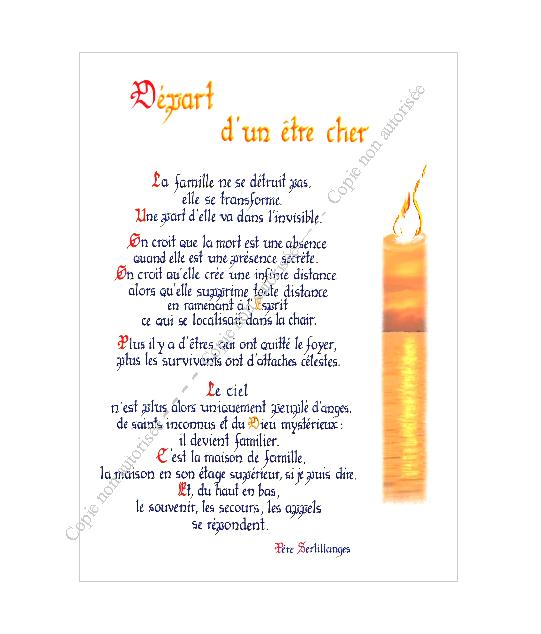 Départ
d'un être cher
La famille ne se détruit pas,
elle se transforme.
Une part d'elle va dans l'invisible.
On croit que la mort est une absence
quand elle est une présence secrète.
On croit qu'elle crée une infinie distance
alors qu'elle supprime toute distance
en ramenant à l'Esprit
ce qui se localisait dans la chair.
Plus il y a d'êtres qui ont quitté le foyer,
plus les survivants ont d'attaches célestes.
Le ciel
n'est plus alors uniquement peuplé d'anges,
de saints inconnus et du Dieu mystérieux :
il devient familier.
C'est la maison de famille,
la maison en son étage supérieur, si je puis dire.
Et, du haut en bas,
le souvenir, les secours, les appels
se répondent.
Père Sertillanges
Copie non autorisée - - - - Copie non autorisée - - - - Copie non autorisée